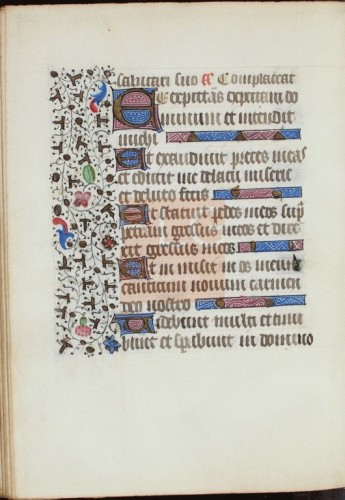 salutari suo a Complaceat
Expectās expectaui do
minum et intendit
michi
Et exaudiuit preces meas
et eduxit me de lacu miserie
et de luto fecis
Et statuit pedes meos sup̄
petram gressus meos et dire
xit gressus meos
Et in misit in os meum
canticum nouum carmen
deo nostro
Uidebunt multi et time
bunt et sp̄abunt in domino